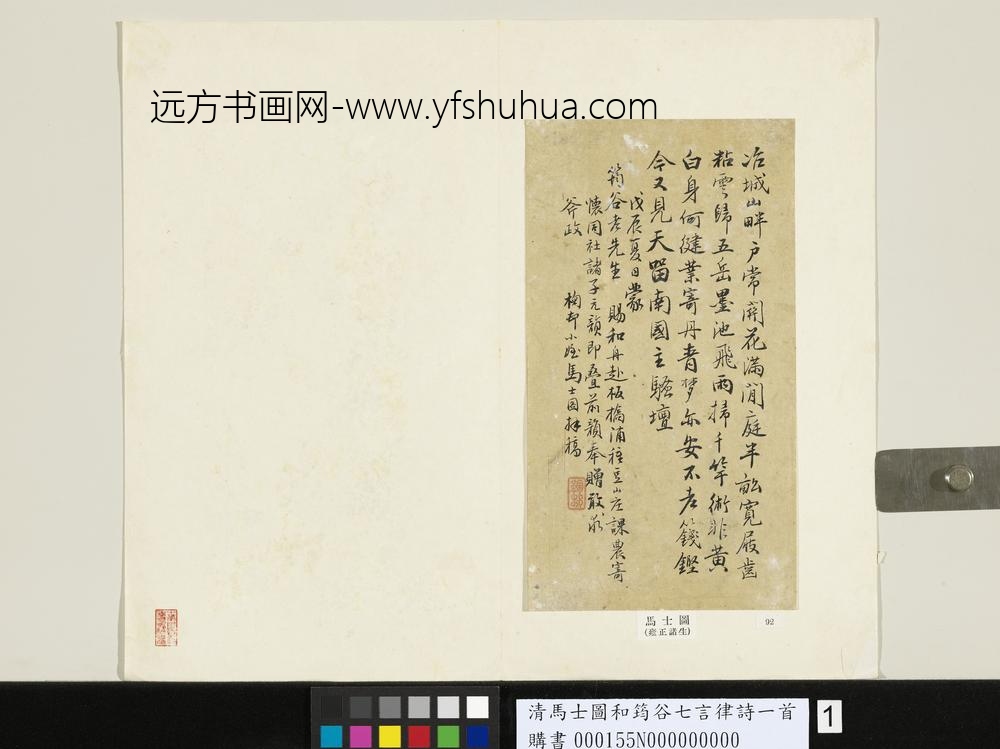 远方书画网-www.yfshuhua.com
冶城山畔户常開花滿閒庭半畝寬屐齒
粘雲歸五岳墨池飛雨掃千竿術非黃
白身何健業寄丹青夢亦安不老籛鏗
今又見天留南國主騷壇
戊辰夏日蒙
筠谷老先生 賜和舟赴板橋浦種豆山庄課農寄
懷同社諸子元韻即叠前韻奉贈敢求
斧政
馬士圖拜稿
馬士圖
(雍正諸生)
92
清馬士圖和筠谷七言律詩一首
購書 000155N000000000
1